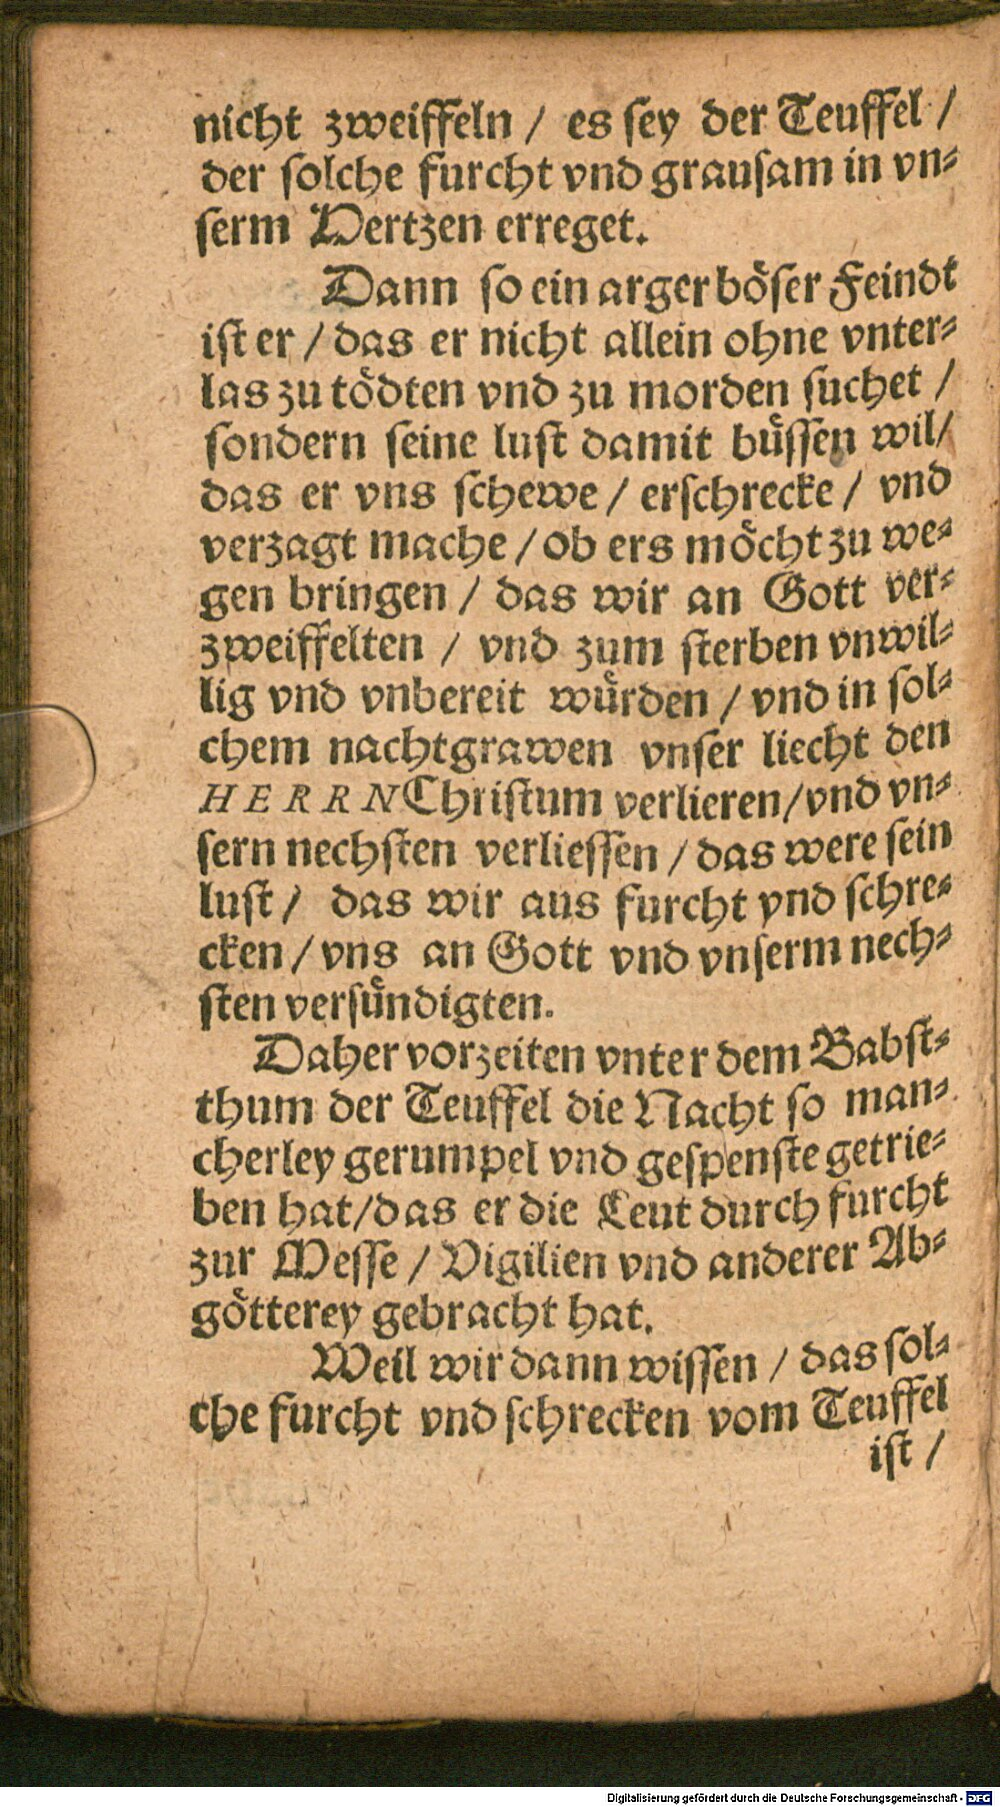 nicht zweiffeln / es sey der Teuffel /
der solche furcht vnd grausam in vn⸗
serm Hertzen erreget.
Dann so ein arger böser Feindt
ist er / das er nicht allein ohne vnter⸗
las zu tödten vnd zu morden suchet /
sondern seine lust damit büssen wil/
das er vns schewe / erschrecke / vnd
verzagt mache / ob ers möcht zu we⸗
gen bringen / das wir an Gott ver⸗
zweiffelten / vnd zum sterben vnwil⸗
lig vnd vnbereit würden / vnd in sol⸗
chem nachtgrawen vnser liecht den
HERRN Christum verlieren/vnd vn⸗
sern nechsten verliessen / das were sein
lust / das wir aus furcht vnd schre⸗
cken / vns an Gott vnd vnserm nech⸗
sten versündigten.
Daher vorzeiten vnter dem Babst⸗
thum der Teuffel die Nacht so man⸗
cherley gerumpel vnd gespenste getrie⸗
ben hat/das er die Leut durch furcht
zur Messe / Vigilien vnd anderer Ab⸗
götterey gebracht hat.
Weil wir dann wissen / das sol⸗
che furcht vnd schrecken vom Teuffel
ist /
Digitalisierung gefördert durch die Deutsche Forschungsgemeinschaft - DFG